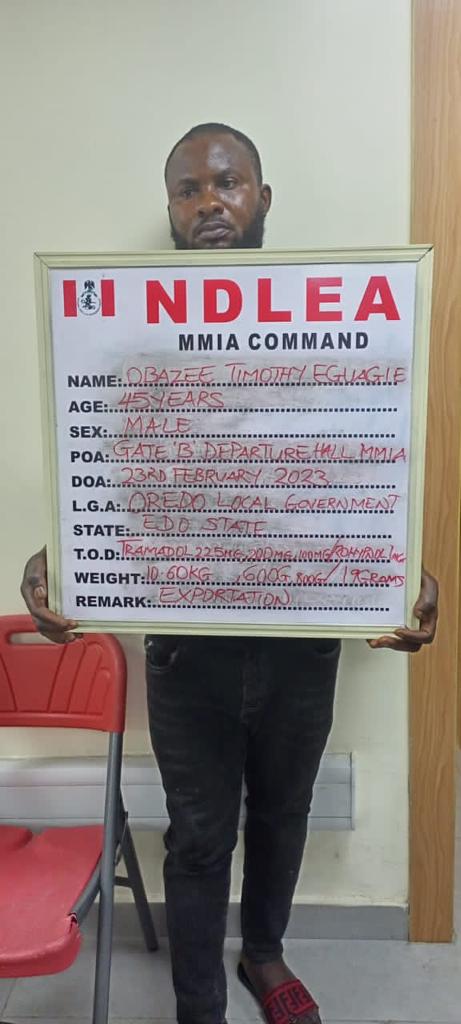 NDLEA
MMIA COMMAND
NAME: OBAZEE TIMOTHY EGUAGIE
AGE: 45 YEARS
SEX: MALE
POA: GATE 'B' DEPARTURE HALL MMIA
DOA: 23RD FEBRUARY, 2023
L.G.A: OREDO LOCAL GOVERNMENT
STATE: EDO STATE
T.O.D: TRAMADOL 225MG, 200MG, 100MG/ROHYPNOL 1MG
WEIGHT: 10.60KG, 600G, 800G/19GRAMS
REMARK: EXPORTATION